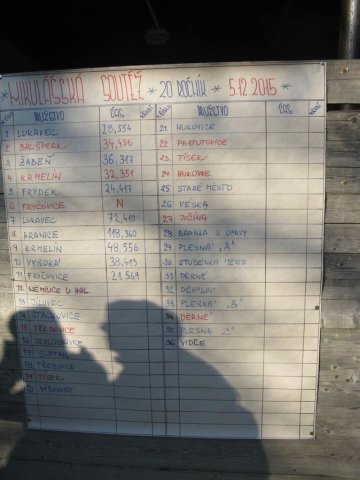 MIKULÁŠSKÁ SOUTĚŽ * 20 ROČNÍK * 5.12.2015 *
DRUŽSTVO ČAS DRUŽSTVO ČAS
1 LUKAVEC 28,554 21. HUKOVICE
2 BRUŠPERK 34,456 22. PARTUTOVICE
3 ŽABEŇ 36,317 23. TÍSEK
4 KRMELÍN 32,351 24. HUKOVICE
5 FRÝDEK 24,417 25. STARÉ MĚSTO
6 FRYČOVICE N 26. VESKA
7 LUKAVEC 72,410 27. JIČINA
8 HRANICE 118,360 28.
9 KRMELÍN 48,556 29. PLESNÁ "A"
10 VYSOKÁ 38,413 30. STUDÉNKA MĚSTO
11 FRYČOVICE 21.569 31. DĚRNÉ
12 NĚMČICE U HOL. 32. DĚHYLOV
13 JÍLOVEC 33. PLESNÁ "B"
14 STACHOVICE 34. DĚRNÉ
15 TŘEBOVICE 35. PLESNÁ
16 36. VIDČE
17 SLATINA
18 TŘEBOVICE
19 TÍSEK
20 VÝŠKOVICE